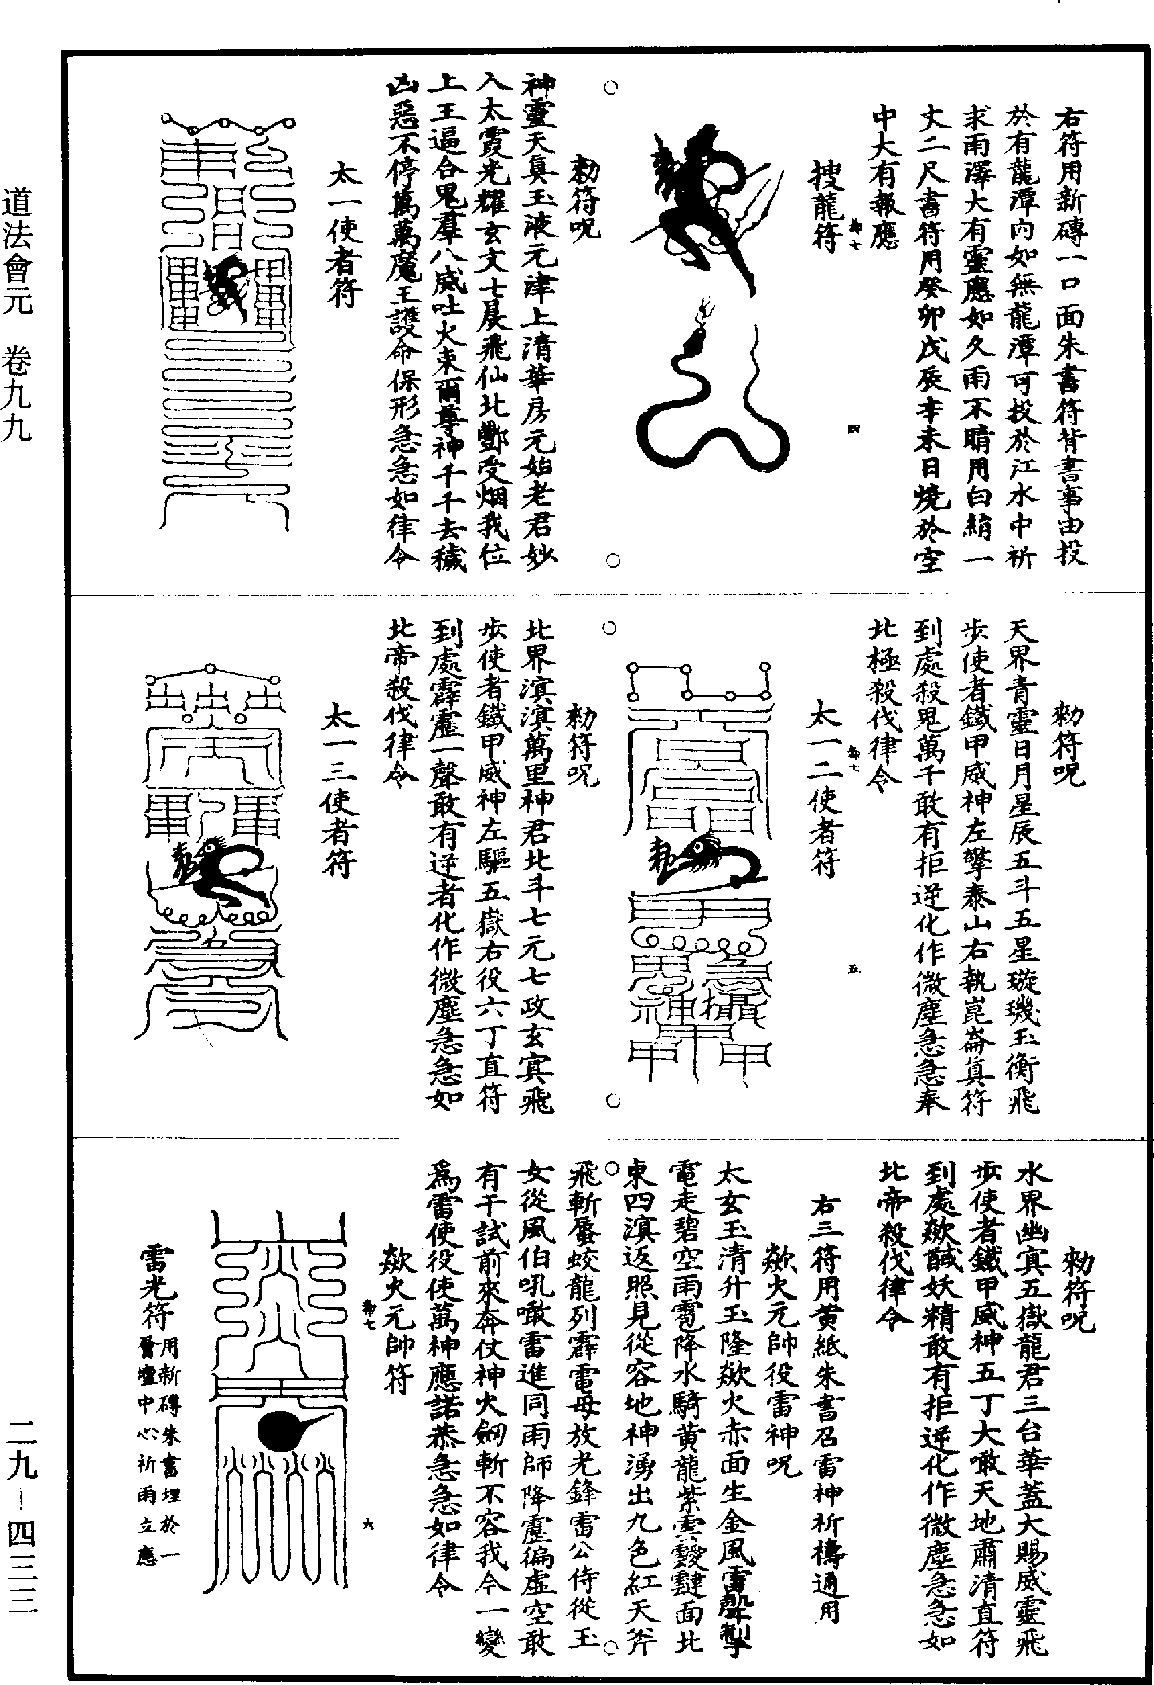 道法會元　卷九九
二九－四三三
右符用新磚一口面朱書符背書事由投
於有龍潭內如無龍潭可投於江水中祈
求雨澤大有靈應如久雨不晴用白絹一
丈二尺書符用癸卯戊辰辛未日燒於空
中大有報應
搜龍符
敕符呪
神靈天真玉液元津上清華房元始老君妙
入太霞光耀玄文七晨飛仙北酆受煙我位
上王逼合鬼羣八威吐火束爾尊神千千去穢
凶惡不停萬萬魔王護命保形急急如律令
太一使者符
敕符呪
天界青靈日月星辰五斗五星璇璣玉衡飛
步使者鐵甲威神左擎泰山右執崑崙真符
到處殺鬼萬千敢有拒逆化作微塵急急奉
北極殺伐律令
太一二使者符
敕符呪
北界溟溟萬里神君北斗七元七政玄冥飛
步使者鐵甲威神左驅五嶽右役六丁直符
到處霹靂一聲敢有逆者化作微塵急急如
北帝殺伐律令
太一三使者符
敕符呪
水界幽冥五嶽龍君三台華蓋大賜威靈飛
步使者鐵甲威神五丁大噉天地肅清直符
到處欻馘妖精敢有拒逆化作微塵急急如
北帝殺伐律令
右三符用黃紙朱書召雷神祈禱通用
欻火元帥役雷神呪
太玄玉清升玉隆欻火赤面生金風雷聲掣
電走碧空雨雹降水騎黃龍紫雲靉靆面北
東四溟返照見從容地神湧出九色紅天斧
飛斬蜃蛟龍列霹電母放光鋒雷公侍從玉
女從風伯吼噉雷進同雨師降靂徧虛空敢
有干試前來奔仗神火劒斬不容我今一變
為雷使役使萬神應諾恭急急如律令
欻火元帥符
雷光符
用新磚朱書埋於一
雷壇中心祈雨立應